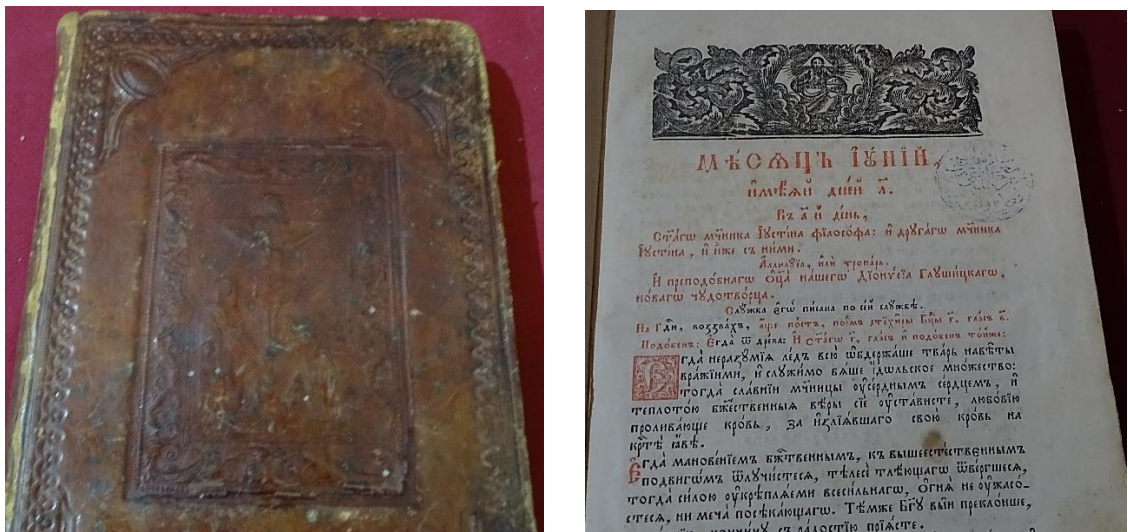 МѢ́СѦЦЪ ІꙊ́НІЙ,
и҆мѣ́ѧй дне́й л҃.
Въ а҃ й де́нь,
Ст҃а́гѡ мч҃ника І҆ꙋсті́на фїлосо́фа: и҆ дрꙋга́гѡ мч҃ника
І҆ꙋсті́на, и҆ и҆̀же съ ни́ми.
А҆ллилꙋ́їа, и҆лѝ тропа́рь.
И҆ преподо́бнагѡ ѻ҆ц҃а̀ на́шегѡ Дїонѵ́сїа Глꙋши́цкагѡ,
но́вагѡ чꙋдотво́рца.
Слꙋ́жба є҆гѡ̀ пи́сана по се́й слꙋ́жбѣ.
На Гд҃и, воззва́хъ, а҆́ще по́стъ, пое́мъ стїхи́ры Бц҃ы г҃. гла́съ в҃.
Подо́бенъ: Є҆гда̀ ѿ дре́ва: И҆ ст҃а́гѡ г҃, гла́съ и҆ подо́бенъ то́йже:
Є҆гда̀ неразꙋ́мїѧ ле́дъ всю̀ ѡ҆держа́ше тва́рь навѣ́ты
вра́жїими, и҆ слꙋжи́мо бѧ́ше і҆́дѡльское мно́жество:
тогда̀ сла́внїи мч҃ницы ᲂу҆се́рднымъ се́рдцемъ, и҆
теплото́ю бж҃е́ственныѧ вѣ́ры сїѐ ᲂу҆ста́висте, любо́вїю
пролива́юще кро́вь, за и҆злїѧ́вшаго свою̀ кро́вь на
крⷭ҇тѣ̀ ꙗ҆́вѣ.
Є҆гда̀ манове́нїемъ бж҃твеннымъ, къ вышеесте́ственнымъ
по́двигѡмъ ѿлꙋчи́стесѧ, тѣлесѐ тлѣ́ющагѡ ѿве́ргшесѧ,
тогда̀ си́лою ᲂу҆крѣплѧ́еми всеси́льнагѡ, ѻ҆гнѧ̀ не ᲂу҆жасо́-
стесѧ, ни меча̀ посѣка́ющагѡ. Тѣ́мже Бг҃ꙋ вы́и прекло́нше,
съ ра́достїю прїѧ́сте.